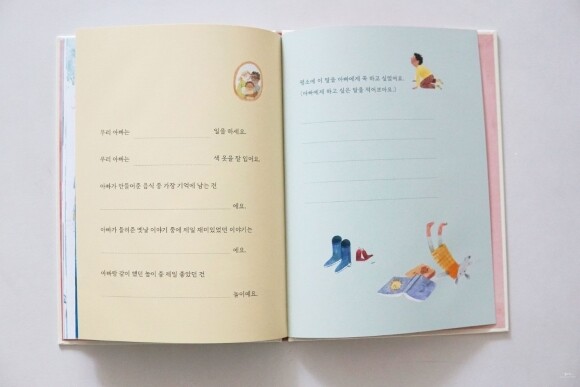 우리 아빠는 일을 하세요.
우리 아빠는 색 옷을 잘 입어요.
아빠가 만들어준 음식 중 가장 기억에 남는 건
예요.
아빠가 들려준 옛날 이야기 중에 제일 재미있었던 이야기는
예요.
아빠랑 같이 했던 놀이 중 제일 좋았던 건
놀이예요.
평소에 이 말을 아빠에게 꼭 하고 싶었어요.
(아빠에게 하고 싶은 말을 적어보아요.)